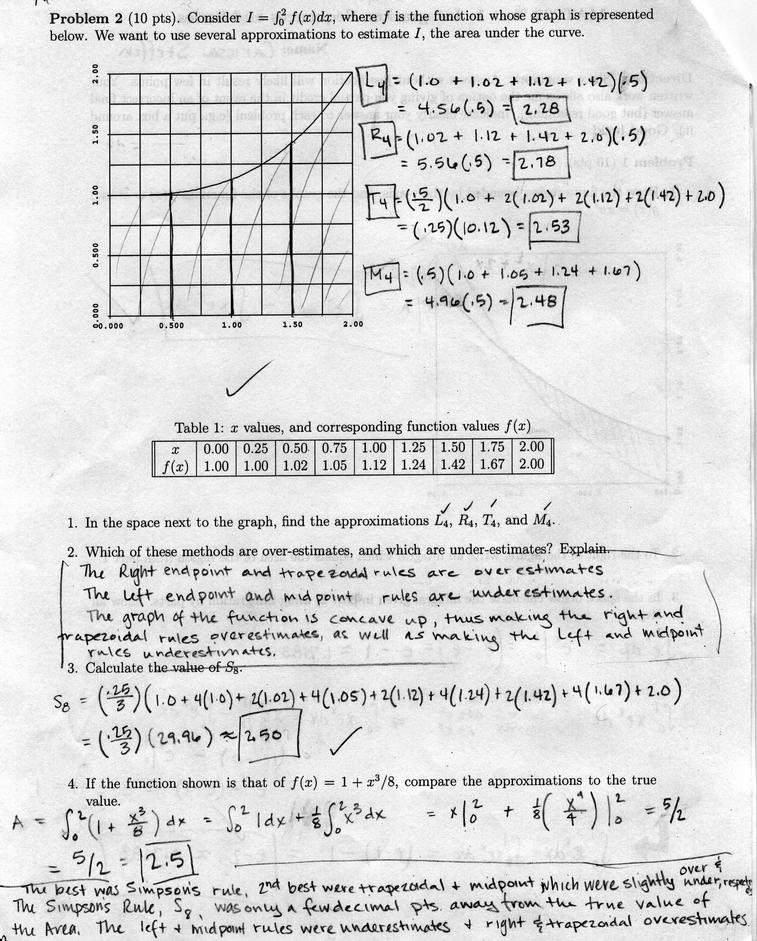 Problem 2 (10 pts). Consider I = ∫₀² f(x)dx, where f is the function whose graph is represented
below. We want to use several approximations to estimate I, the area under the curve.
2.00
1.50
1.00
0.500
0.000
0.000 0.500 1.00 1.50 2.00
L₄ = (1.0 + 1.02 + 1.12 + 1.42)(.5)
= 4.56(.5) = 2.28
R₄ = (1.02 + 1.12 + 1.42 + 2.0)(.5)
= 5.56(.5) = 2.78
T₄ = (.5/2)(1.0 + 2(1.02) + 2(1.12) + 2(1.42) + 2.0)
= (.25)(10.12) = 2.53
M₄ = (.5)(1.0 + 1.05 + 1.24 + 1.67)
= 4.96(.5) = 2.48
Table 1: x values, and corresponding function values f(x)
x 0.00 0.25 0.50 0.75 1.00 1.25 1.50 1.75 2.00
f(x) 1.00 1.00 1.02 1.05 1.12 1.24 1.42 1.67 2.00
1. In the space next to the graph, find the approximations L₄, R₄, T₄, and M₄.
2. Which of these methods are over-estimates, and which are under-estimates? Explain.
The Right endpoint and trapezoidal rules are overestimates
The Left endpoint and midpoint rules are underestimates.
The graph of the function is concave up, thus making the right and
trapezoidal rules overestimates, as well as making the Left and midpoint
rules underestimates.
3. Calculate the value of S₈.
S₈ = (.25/3)(1.0 + 4(1.0) + 2(1.02) + 4(1.05) + 2(1.12) + 4(1.24) + 2(1.42) + 4(1.67) + 2.0)
= (.25/3)(29.96) ≈ 2.50
4. If the function shown is that of f(x) = 1 + x³/8, compare the approximations to the true
value.
A = ∫₀²(1 + x³/8) dx = ∫₀² 1dx + 1/8 ∫₀² x³ dx = x|₀² + 1/8 (x⁴/4)|₀² = 5/2
= 5/2 = 2.5
The best was Simpson's rule, 2nd best were trapezoidal + midpoint which were slightly over & under, respet.
The Simpson's Rule, S₈, was only a few decimal pts. away from the true value of
the Area. The left + midpoint rules were underestimates + right & trapezoidal overestimates.